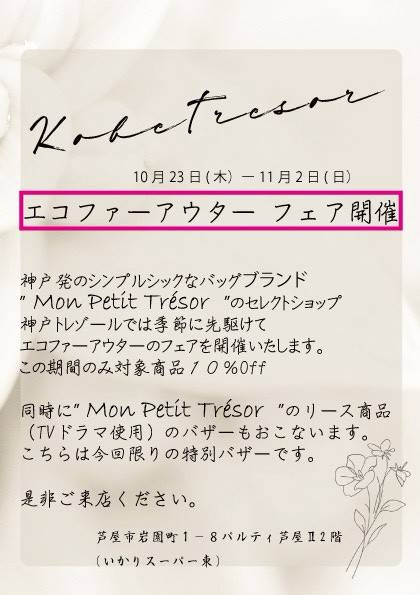 Kobetresor
10月23日(木)－11月2日(日)
エコファーアウター フェア開催
神戸発のシンプルシックなバッグブランド
" Mon Petit Trésor "のセレクトショップ
神戸トレゾールでは季節に先駆けて
エコファーアウターのフェアを開催いたします。
この期間のみ対象商品１０%Off
同時に" Mon Petit Trésor "のリース商品
（TVドラマ使用）のバザーもおこないます。
こちらは今回限りの特別バザーです。
是非ご来店ください。
芦屋市岩園町１－８パルティ芦屋Ⅱ2階
(いかりスーパー東)